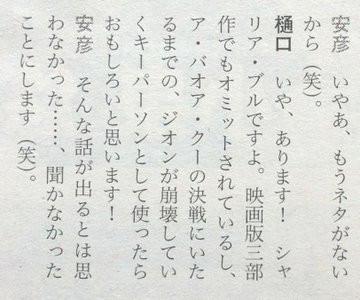 安彦　いやあ、もうネタがない
から（笑）。
樋口　いや、あります！　シャ
リア・ブルですよ。映画版三部
作でもオミットされているし、
ア・バオア・クーの決戦にいた
るまでの、ジオンが崩壊してい
くキーパーソンとして使ったら
おもしろいと思います！
安彦　そんな話が出るとは思
わなかった……、聞かなかった
ことにします（笑）。